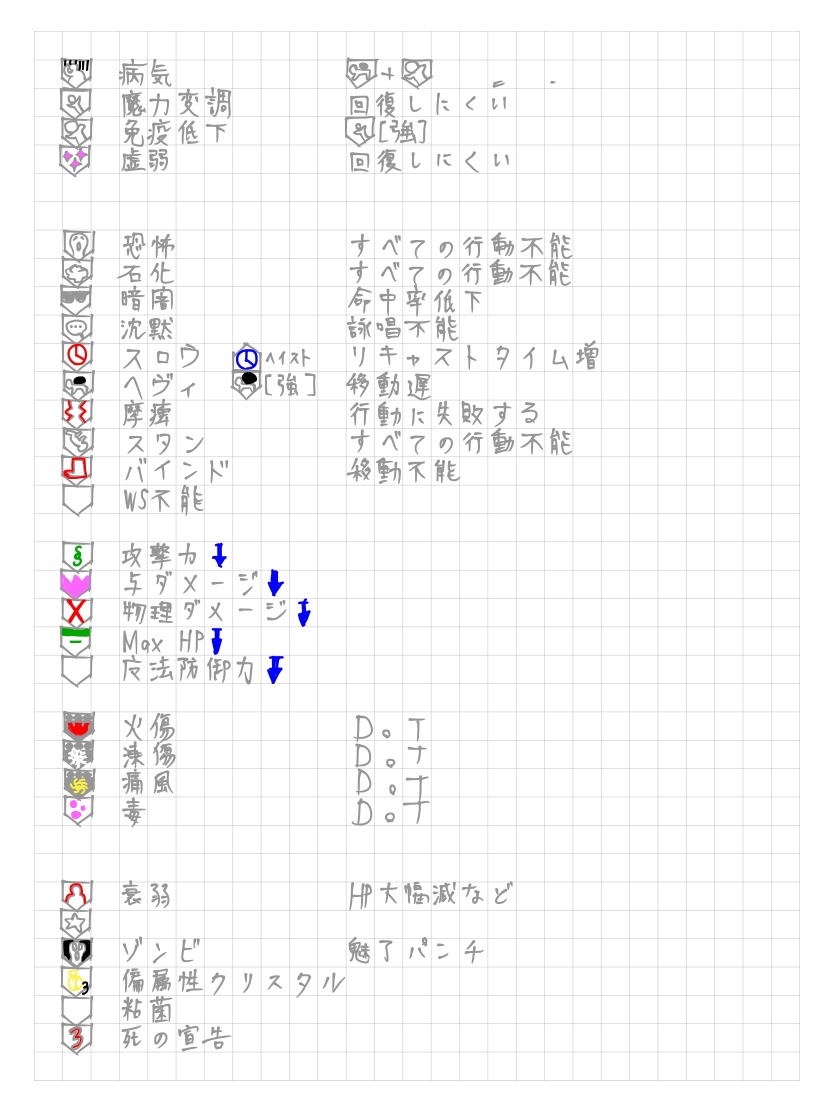 病気 +
魔力変調 回復しにくい
免疫低下 [強]
虚弱 回復しにくい
恐怖 すべての行動不能
石化 すべての行動不能
暗闇 命中率低下
沈黙 詠唱不能
スロウ ヘイスト リキャストタイム増
ヘヴィ [強] 移動遅
摩痺 行動に失敗する
スタン すべての行動不能
バインド 移動不能
WS不能
攻撃力↓
与ダメージ↓
物理ダメージ↓
Max HP↓
法防御力↓
火傷 DoT
凍傷 DoT
痛風 DoT
毒 DoT
衰弱 HP大幅減など
ゾンビ 魅了パンチ
3 偏属性クリスタル
粘菌
3 死の宣告